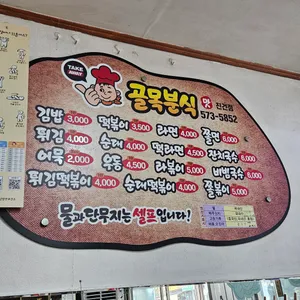 TAKE AWAY
골목분식 맛 진건점
573-5852
김밥 3,000 떡볶이 3,500 라면 4,000 쫄면 6,000
튀김 4,000 순대 4,000 떡라면 4,500 잔치국수 6,000
어묵 2,000 우동 4,500 라볶이 5,000 비빔국수 6,000
튀김떡볶이 4,000 순대떡볶이 4,000 쫄볶이 5,000
물과 단무지는 셀프입니다!